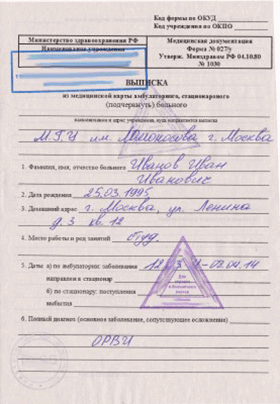 Код формы по ОКУД
Код учреждения по ОКПО
Министерство здравоохранения РФ
Наименование учреждения
Медицинская документация
Форма № 027у
Утверж. Минздравом РФ 04.10.80
№ 1030
ВЫПИСКА
из медицинской карты амбулаторного, стационарного
(подчеркнуть) больного
наименование и адрес учреждения, куда направляется выписка
МГУ им. Ломоносова г. Москва
1. Фамилия, имя, отчество больного Иванов Иван
Иванович
2. Дата рождения 25.03.1995
3. Домашний адрес г. Москва, ул. Ленина
д. 3 кв. 12
4. Место работы и род занятий студ.
5. Даты: а) по амбулатории: заболевания
02.04.14
направлен в стационар
б) по стационару: поступления
выбытия
6. Полный диагноз (основное заболевание, сопутствующее осложнения)
ОРВИ